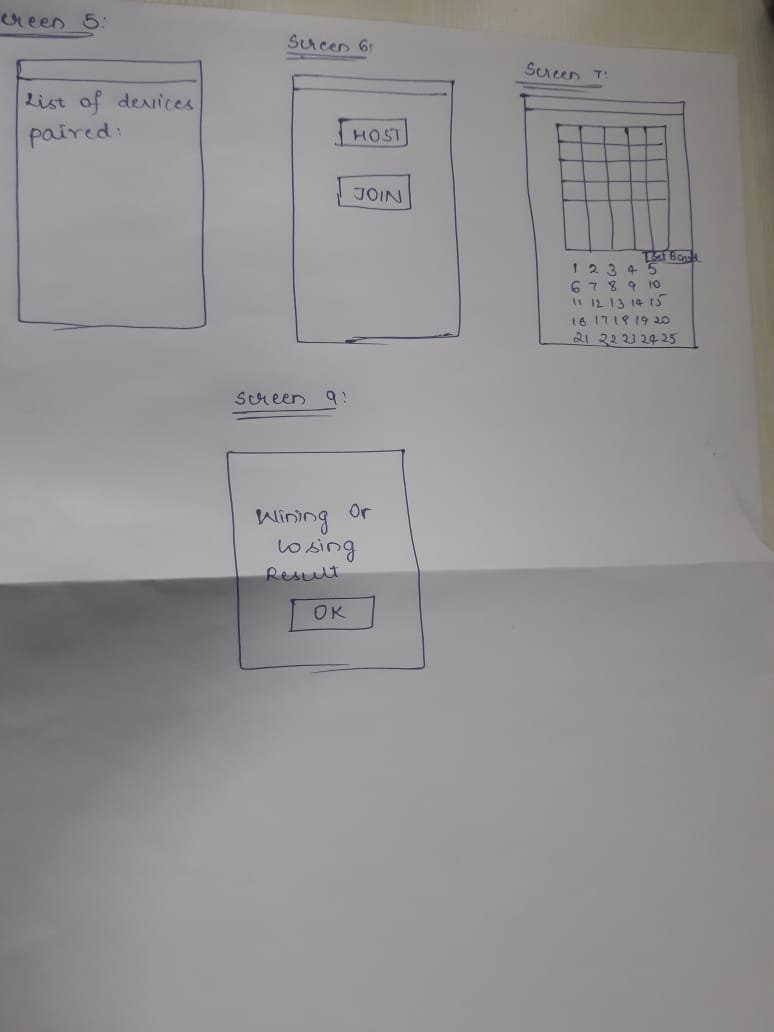 creen 5:
List of devices
paired:
Screen 6:
HOST
JOIN
Screen 7:
Set Board
1 2 3 4 5
6 7 8 9 10
11 12 13 14 15
16 17 18 19 20
21 22 23 24 25
Screen 9:
Wining Or
Losing
Result
OK